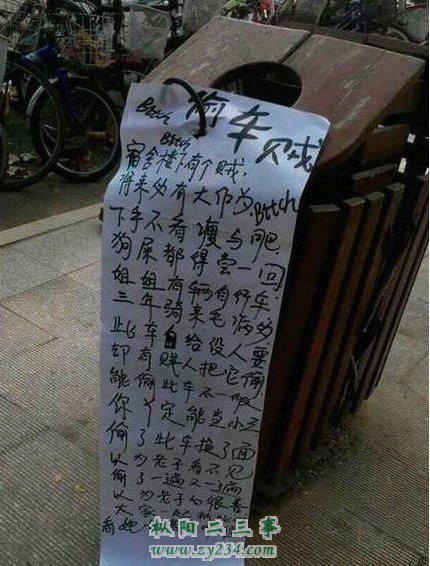 偷车贼
Bitch
Bitch
宿舍楼下有个贼,
将来必有大作为,Bitch
下手不有瘦与肥
狗屎都得尝一回
姐姐有辆自行车
三年骑来毛病多
此车自给没人要
却有贼人把它偷
能偷此车不一般
你丫定能当小三
偷了此车换了面
以为老子看不见
偷了一遍又一遍
以为老子
大家一起
看她
枞阳二三事
www.zy234.com